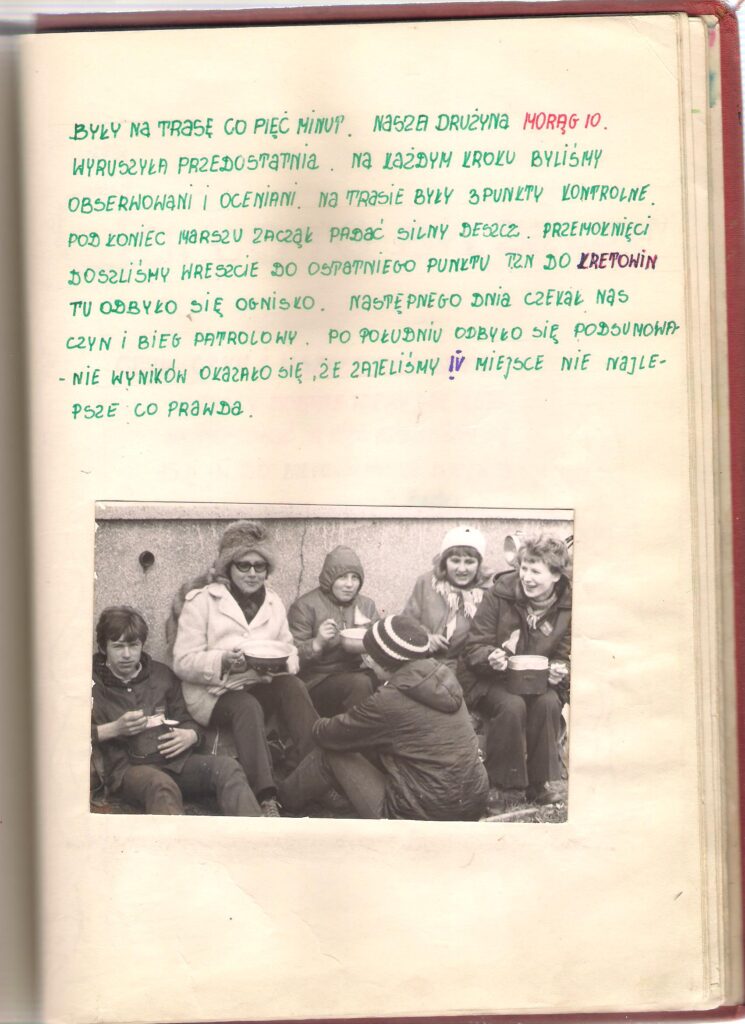 BYŁY NA TRASĘ CO PIĘĆ MINUT. NASZA DRUŻYNA MORĄG 10.
WYRUSZYŁA PRZEDOSTATNIA. NA KAŻDYM KROKU BYLIŚMY
OBSERWOWANI I OCENIANI. NA TRASIE BYŁY 3 PUNKTY KONTROLNE.
POD KONIEC MARSZU ZACZĄŁ PADAĆ SILNY DESZCZ. PRZEMOKNIĘCI
DOSZLIŚMY WRESZCIE DO OSTATNIEGO PUNKTU TZN DO KRETOWIN
TU ODBYŁO SIĘ OGNISKO. NASTĘPNEGO DNIA CZEKAŁ NAS
CZYN I BIEG PATROLOWY. PO POŁUDNIU ODBYŁO SIĘ PODSUMOWA-
- NIE WYNIKÓW OKAZAŁO SIĘ, ŻE ZAJELIŚMY IV MIEJSCE NIE NAJLE-
PSZE CO PRAWDA.